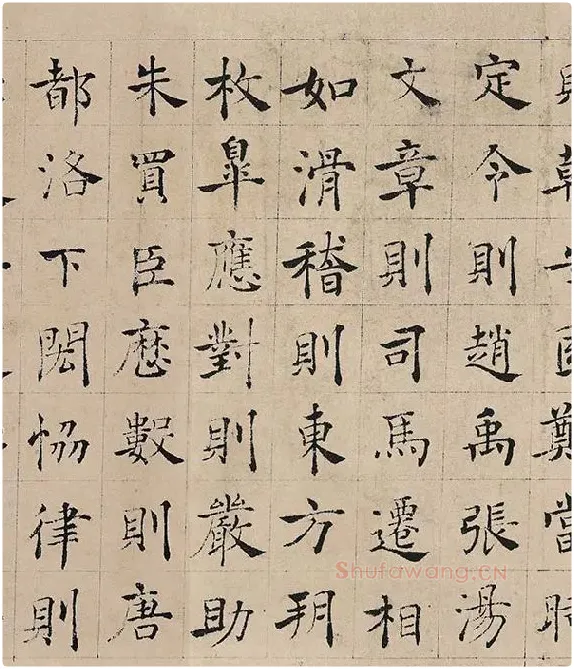 定令則趙禹張湯
文章則司馬遷相
如滑稽則東方朔
枚皋應對則嚴助
朱買臣歷數則唐
都洛下閎恊律則
Shufawang.CN